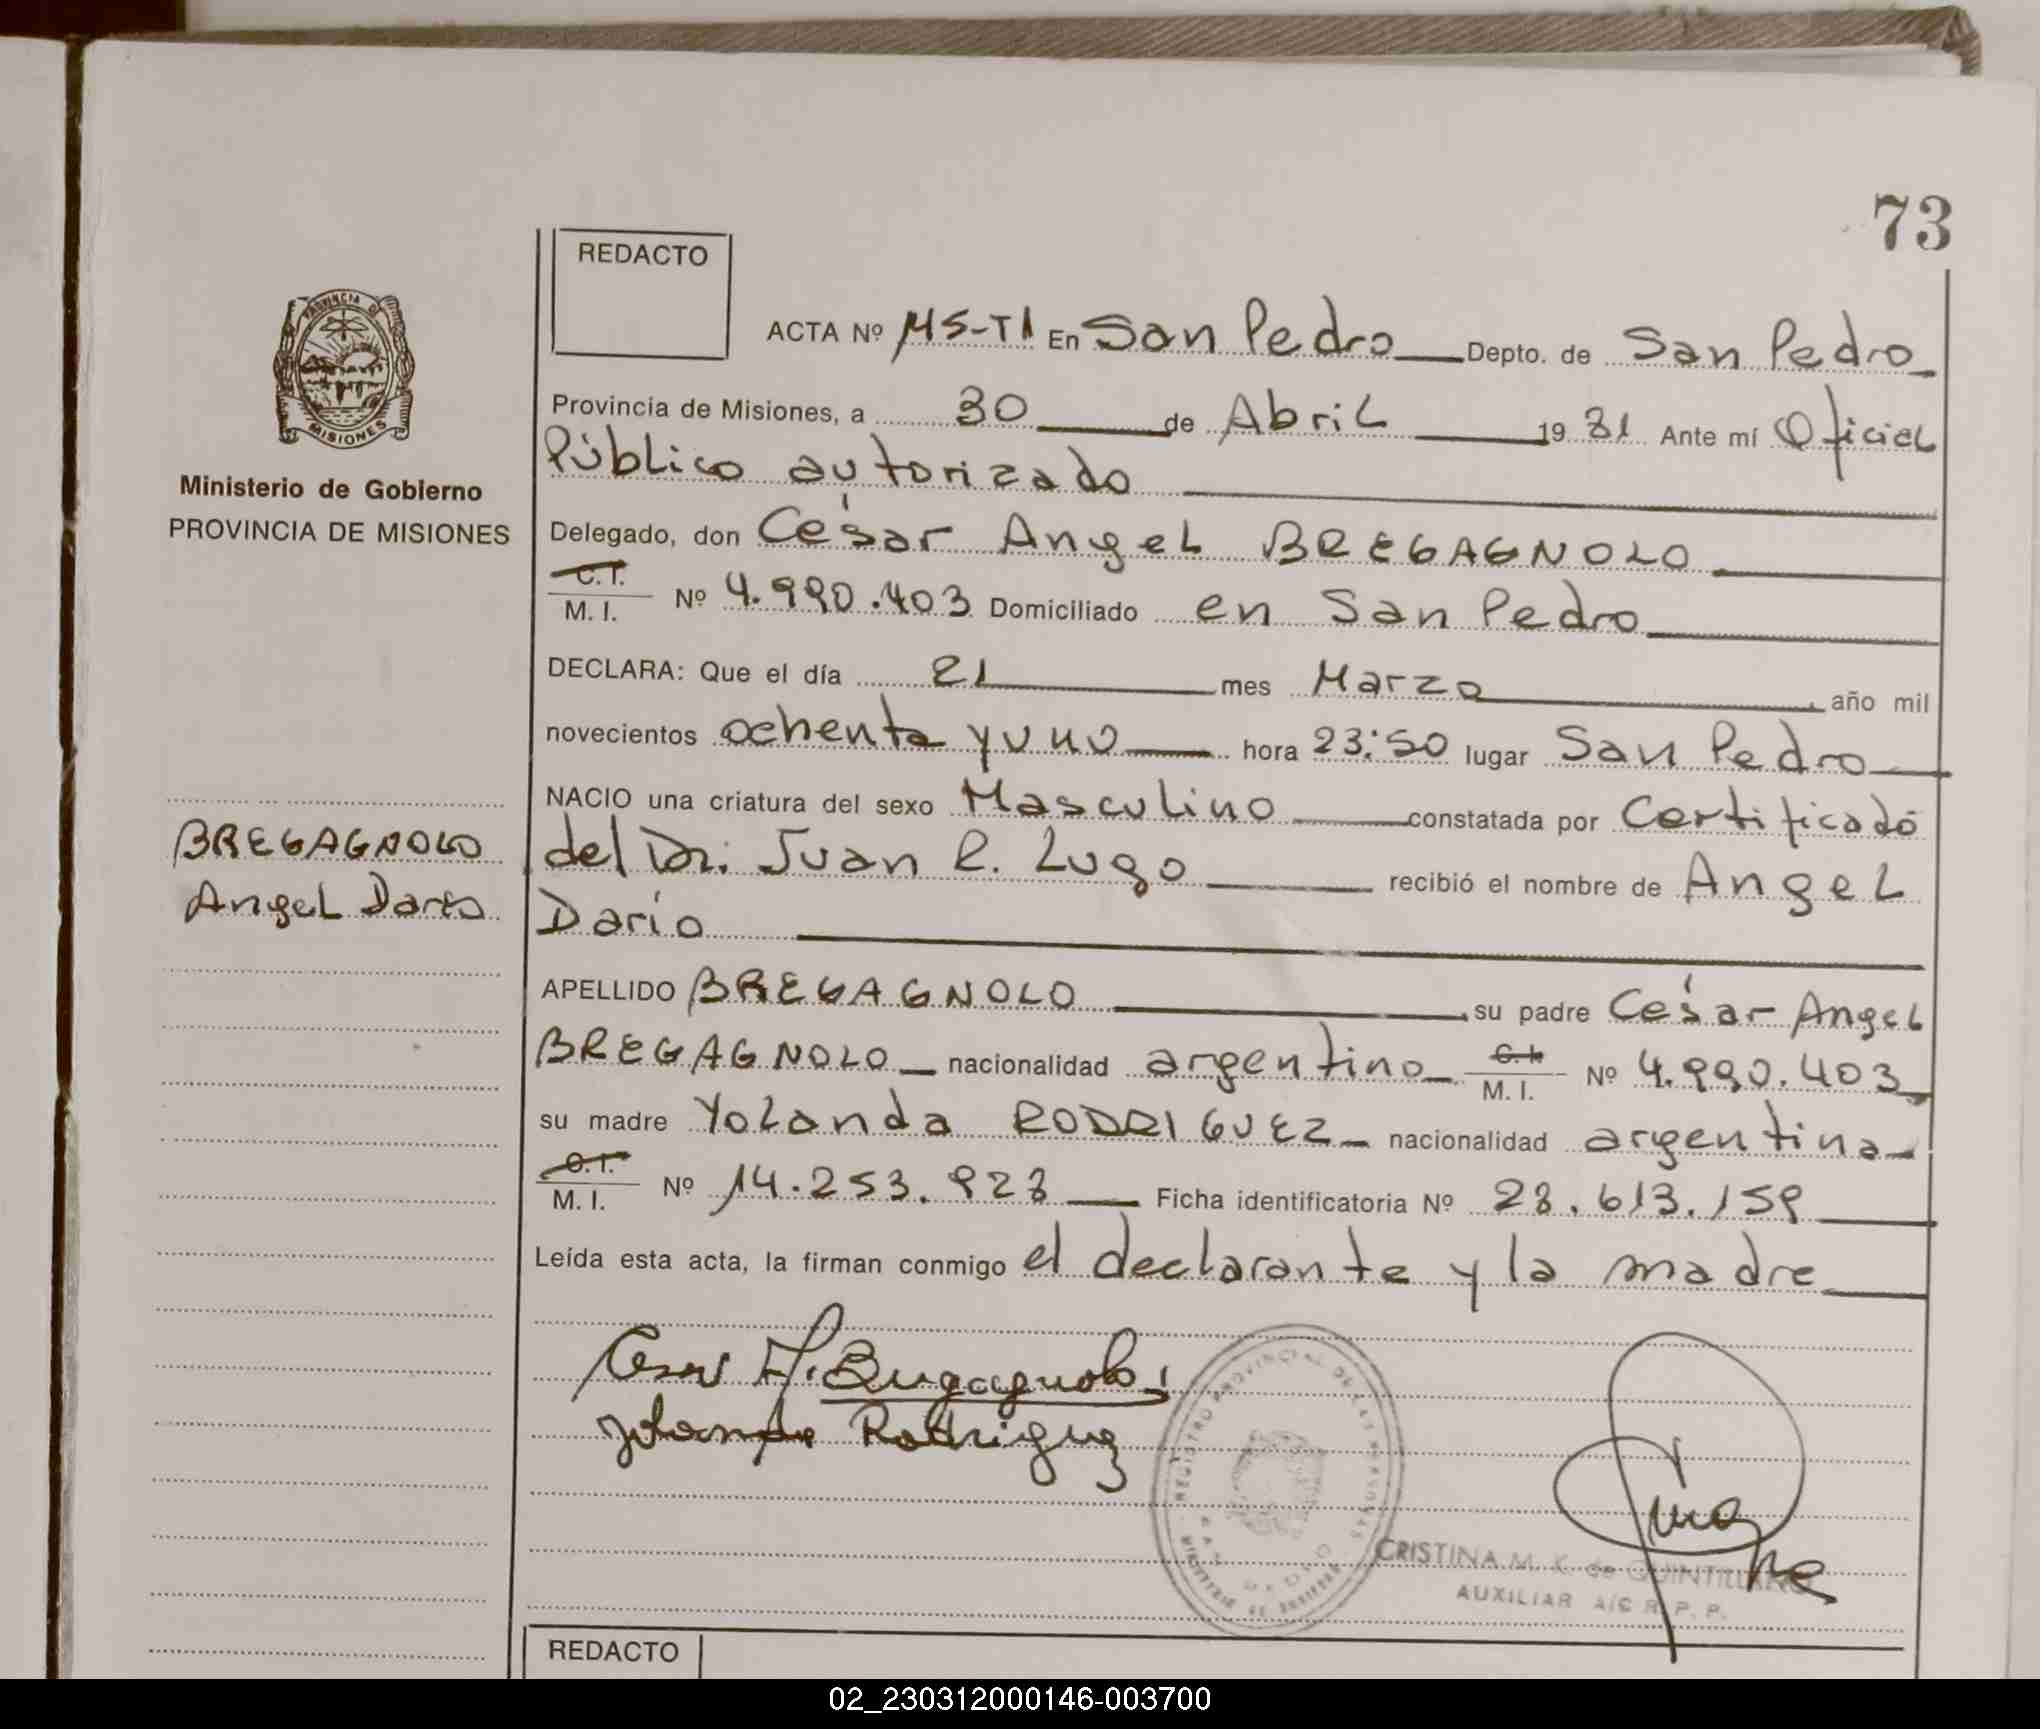 73
REDACTO
ACTA Nº 145-T1 En San Pedro Depto. de San Pedro
Provincia de Misiones, a 30 de Abril 1981 Ante mí Oficial
Público autorizado
Delegado, don César Angel BREGAGNOLO
C.I. M. I. Nº 4.990.403 Domiciliado en San Pedro
DECLARA: Que el día 21 mes Marzo año mil
novecientos ochenta y uno hora 23:50 lugar San Pedro
NACIO una criatura del sexo Masculino constatada por Certificado
del Dr. Juan R. Lugo recibió el nombre de Angel
Darío
APELLIDO BREGAGNOLO su padre César Angel
BREGAGNOLO nacionalidad argentino C.I. M. I. Nº 4.990.403
su madre Yolanda RODRIGUEZ nacionalidad argentina
C.I. M. I. Nº 14.253.928 Ficha identificatoria Nº 28.613.159
Leída esta acta, la firman conmigo el declarante y la madre
Cesar A. Bregagnolo
Yolanda Rodriguez
REGISTRO PROVINCIAL DE LAS PERSONAS
CRISTINA M. K. de QUINTILLANO
AUXILIAR A/C R. P. P.
REDACTO
PROVINCIA DE
MISIONES
Ministerio de Gobierno
PROVINCIA DE MISIONES
BREGAGNOLO
Angel Darío
02_230312000146-003700